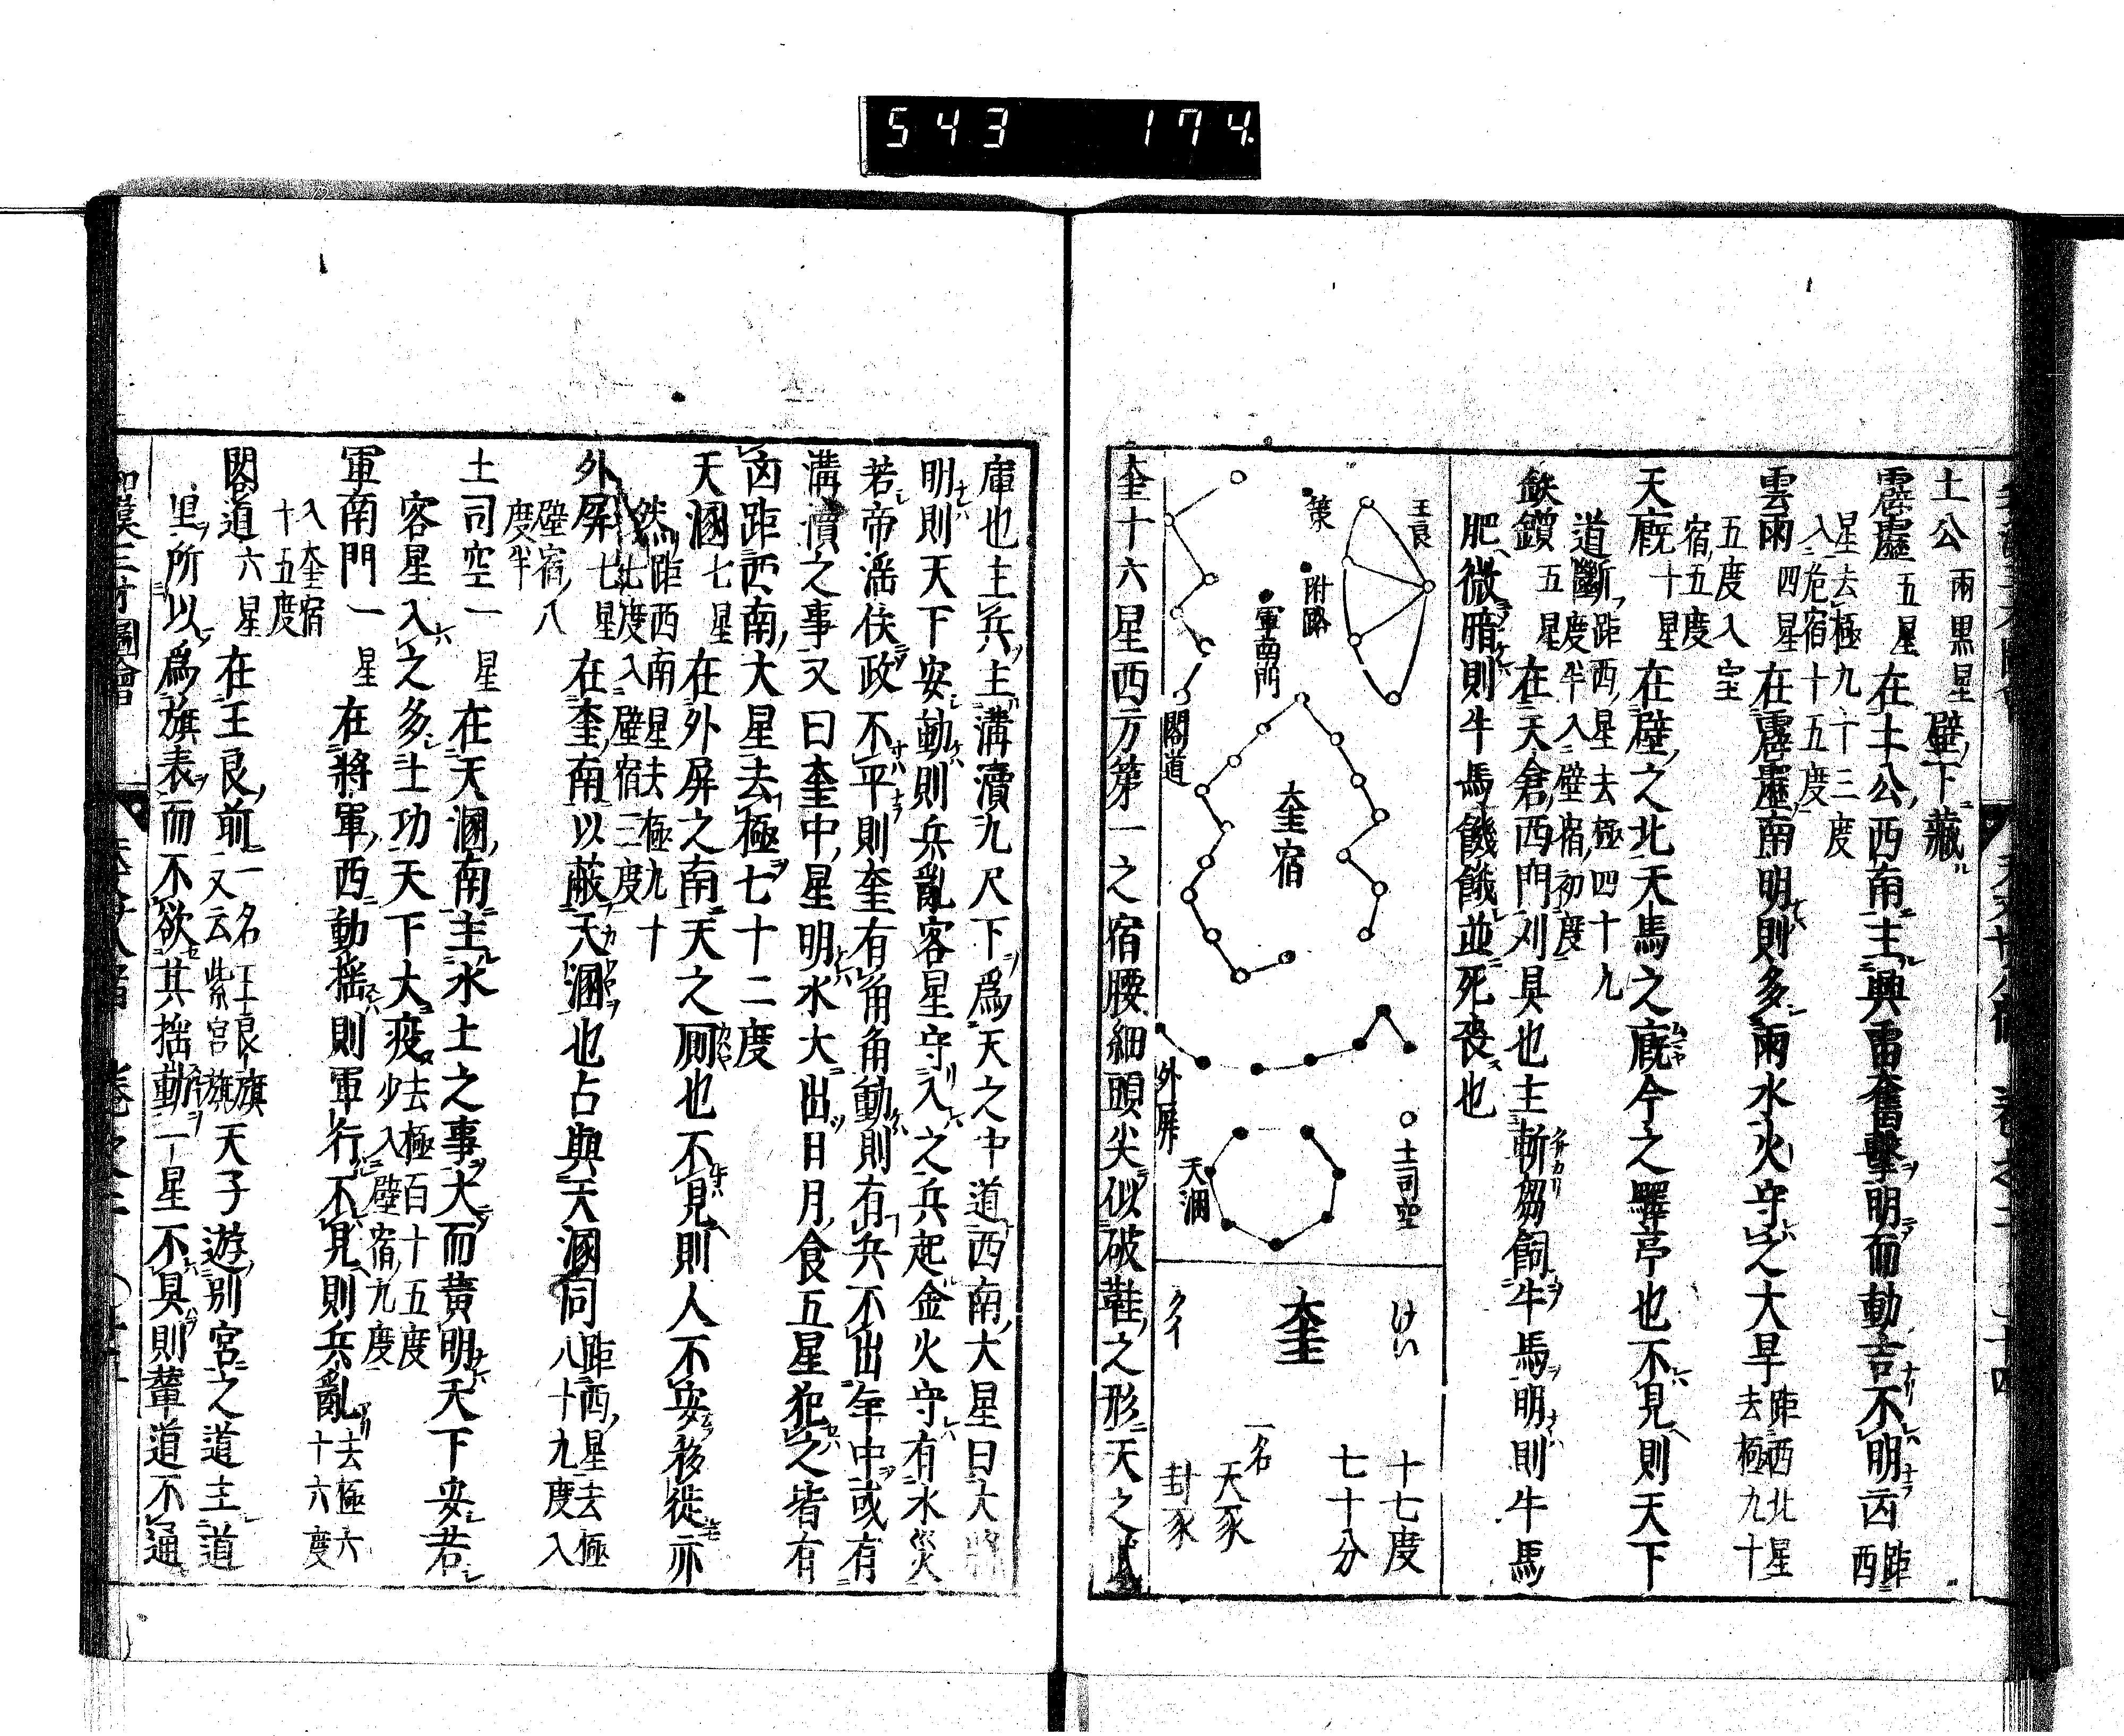 543 174
土公 兩黒星 壁下藏
霹靂 五星 在土公西南主興雷奮擊明而動吉不明凶 距西
星去極九十三度
入危宿十五度
雲雨 四星 在霹靂南明則多雨水火守之大旱 距西北星
去極九十
五度入室
宿五度
天廐 十星 在壁之北天馬之廐今之驛亭也不見則天下
道斷 距西星去極四十九
度半入壁宿初度
鈇鑕 五星 在天倉西門刈具也主斬芻飼牛馬明則牛馬
肥微暗則牛馬饑餓並死喪也
王良
策
附路
軍南門
閣道
奎宿
外屏
天溷
土司空
けい
奎
クイ
十七度
七十分
一名
天豕
封豕
奎十六星西方第一之宿腰細頭尖似破鞋之形天之武
庫也主兵主溝瀆九尺下爲天之中道西南大星曰大將
明則天下安動則兵亂客星守入之兵起金火守有水災
若帝滛佚政不平則奎有角角動則有兵不出年中或有
溝瀆之事又曰奎中星明水大出日月食五星犯之皆有
凶距西南大星去極七十二度
天溷 七星 在外屏之南天之厠也不見則人不安移徙亦
然 距西南星去極九十
七度入壁宿三度
外屏 七星 在奎南以蔽天溷也占與天溷同 距西星去極
八十九度入
壁宿八
度半
土司空一 星 在天溷南主水土之事大而黄明天下安若
客星入之多土功天下大疫 去極百十五度
少入壁宿九度
軍南門一 星 在將軍西動揺則軍行不見則兵亂 去極六
十六度
入奎宿
十五度
閣道 六星 在王良前 一名王良旗
又云紫宮旗 天子遊别宮之道主道
里所以爲旗表而不欲其揺動一星不具則輦道不通
和漢三才圖會